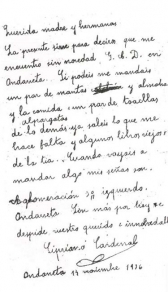 Querida madre y hermanas
La presente sirve para deciros que me
encuentro sin novedad, G. A. D. en
Ondarreta. Si podeis me mandais
un par de mantas y almohada
y la comida un par de toallas
y alpargatas
de lo demás ya sabeis lo que me
hace falta y algunos libros viejos
de la tia. Cuando vayais a
mandar algo mis señas son.
Aglomeración 3ª izquierdo.
Ondarreta Sin más por hoy se
despide vuestro querido e inolvidable
Cipriano Cardenal
Ondarreta 14 noviembre 1936